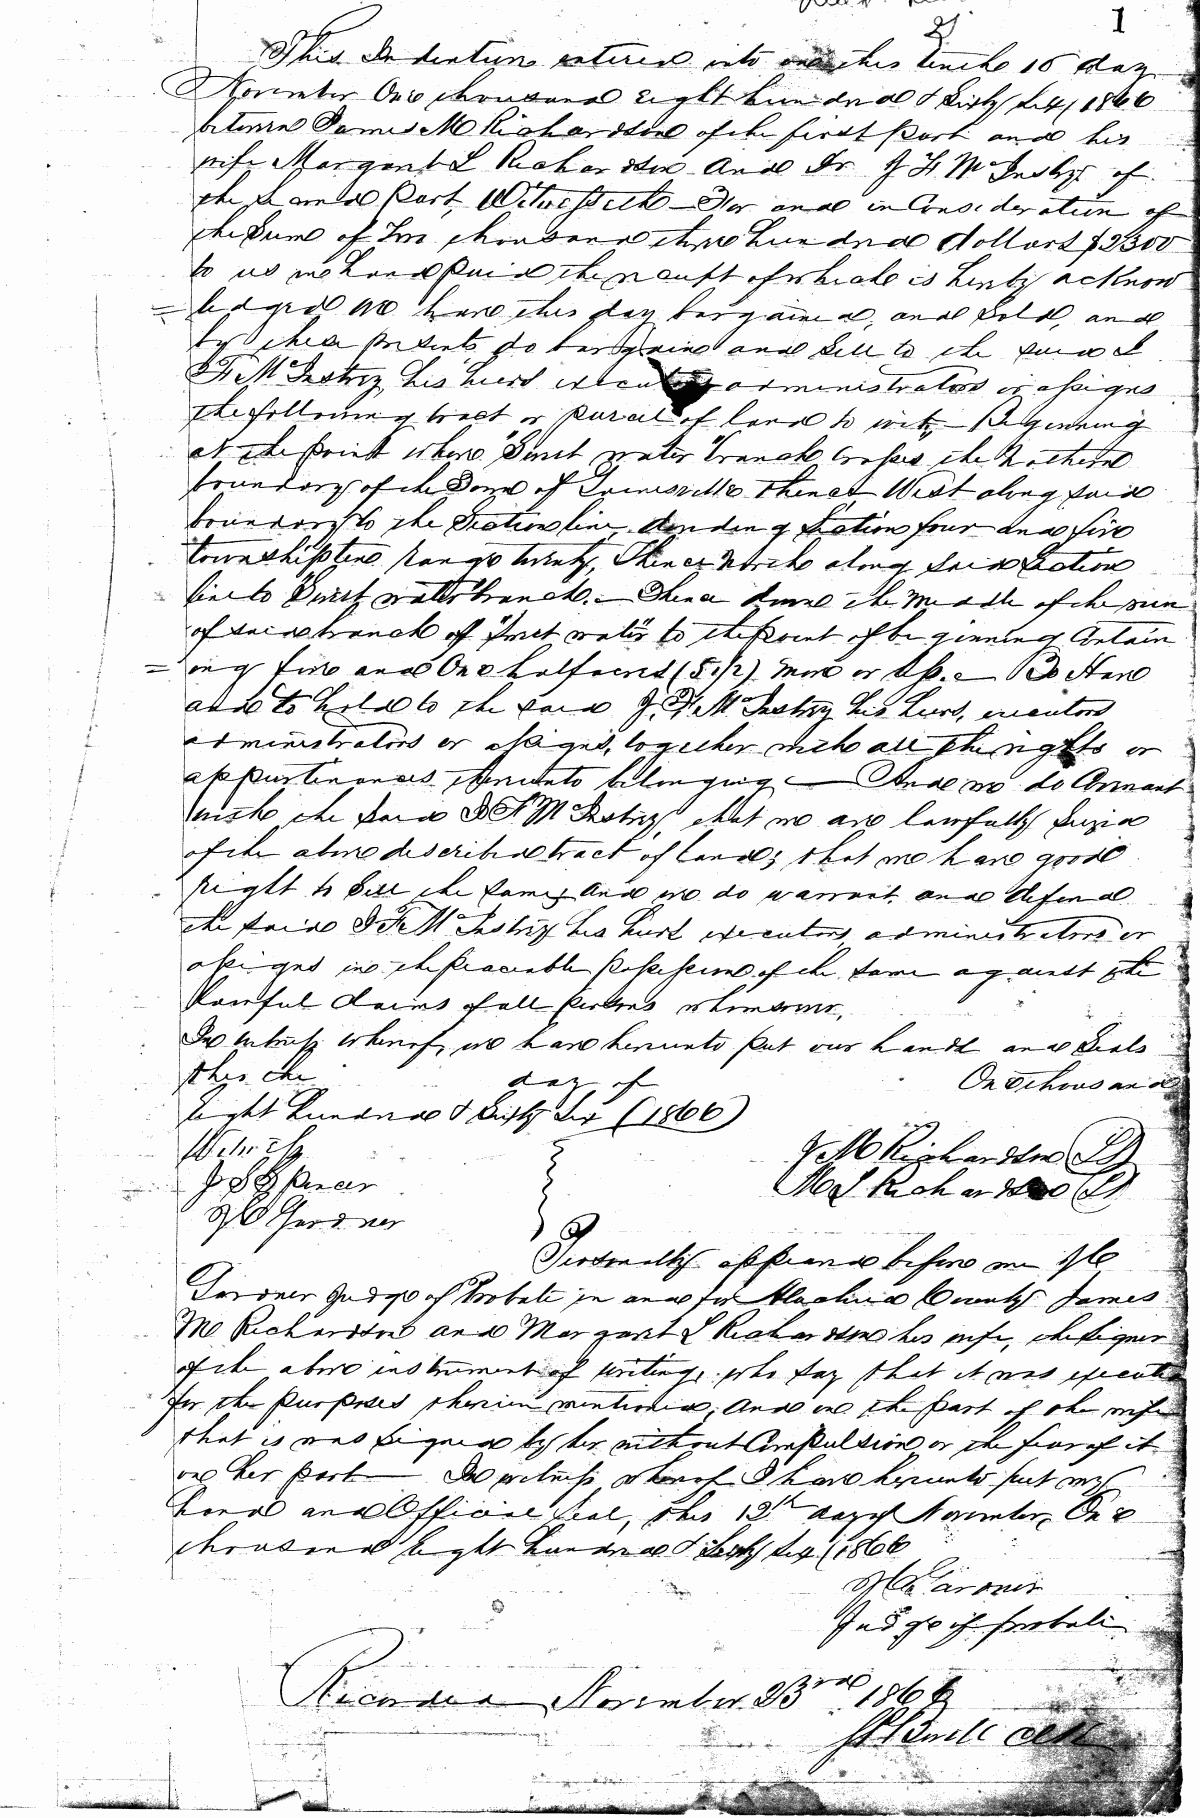 1
This Indenture entered into on this tenth 10 day
November One thousand Eight hundred & Sixty Six (1866
between James M Richardson of the first part and his
wife Margaret L Richardson And Dr J F McInstry of
the Second Part, Witnesseth – For and in Consideration of
the Sum of Two thousand three hundred dollars $2300
to us in hand paid the receipt of which is hereby acknow
= ledged we have this day bargained, and Sold, and
by these presents do bargain and Sell to the said J
F McInstry his heirs executors administrators or assigns
the following tract or parcel of land to wit, – Beginning
at the point where "Sweet water" branch crosses the Nothern
boundary of the Town of Gainesville thence West along said
boundary to the Section line, dividing Section four and five
township ten range twenty, thence North along said Section
line to "Sweet water" branch. – Thence down the middle of the run
of said branch of "Sweet water" to the point of beginning Contain
= ing five and One half acres (5 1/2) more or less. – To Have
and to hold to the said J. F. McInstry his heirs, executors
administrators or assigns, together with all the rights or
appurtinances thereunto belonging – And we do Covenant
with the said J F McInstry, that we are lawfully Seized
of the above described tract of land; that we have good
right to Sell the same; and we do warrant and defend
the said J F McInstry his heirs executors administrators or
assigns in the peaceable possession of the same against the
lawful claims of all persons whomsoever.
In witness whereof, we have hereunto put our hands and Seals
this the day of One thousand
Eight hundred & Sixty Six (1866)
Witness
J M Richardson (LS)
J S Spencer
M L Richardson (LS)
H C Gardner
Personally appeared before me H C
Gardner Judge of Probate in and for Alachua County James
M Richardson and Margaret L Richardson his wife, the Signer
of the above instrument of writing, who say that it was executed
for the purposes therein mentioned, And on the part of the wife
that is was Signed by her without Compulsion or the fear of it
on her part – In witness whereof I have hereunto put my
hand and Official Seal, this 12th day of November, One
thousand Eight hundred & Sixty Six (1866
H C Gardner
Judge of probate
Recorded November 23rd 1866
Clk